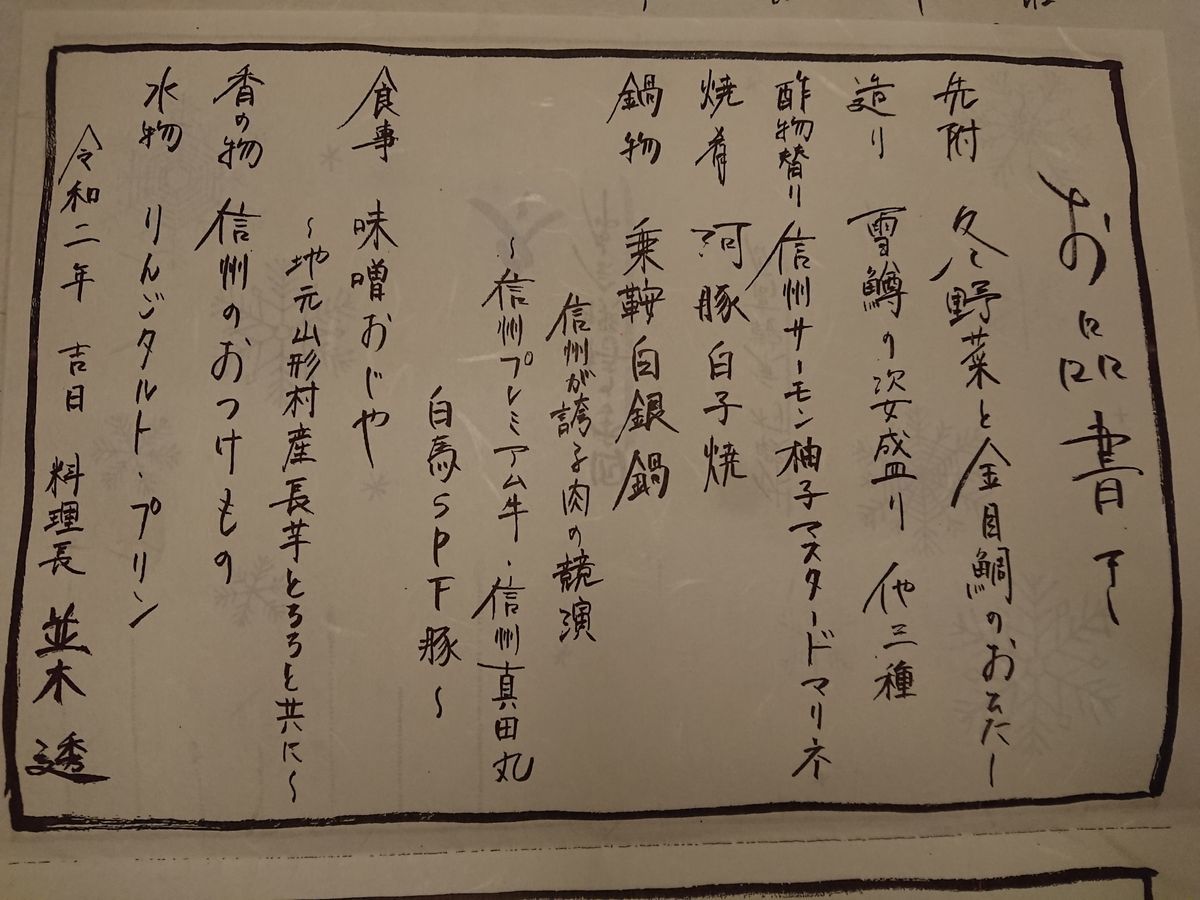 お品書き
先附 冬野菜と金目鯛のおひたし
造り 雪鱒の姿盛り 他三種
酢物替り 信州サーモン柚子マスタードマリネ
焼肴 河豚白子焼
鍋物 乗鞍白銀鍋
信州が誇る肉の競演
~信州プレミアム牛・信州真田丸
白馬SPF豚~
食事 味噌おじや
~地元山形村産長芋とろろと共に~
香の物 信州のおつけもの
水物 りんごタルト・プリン
令和二年 吉日 料理長 並木 透